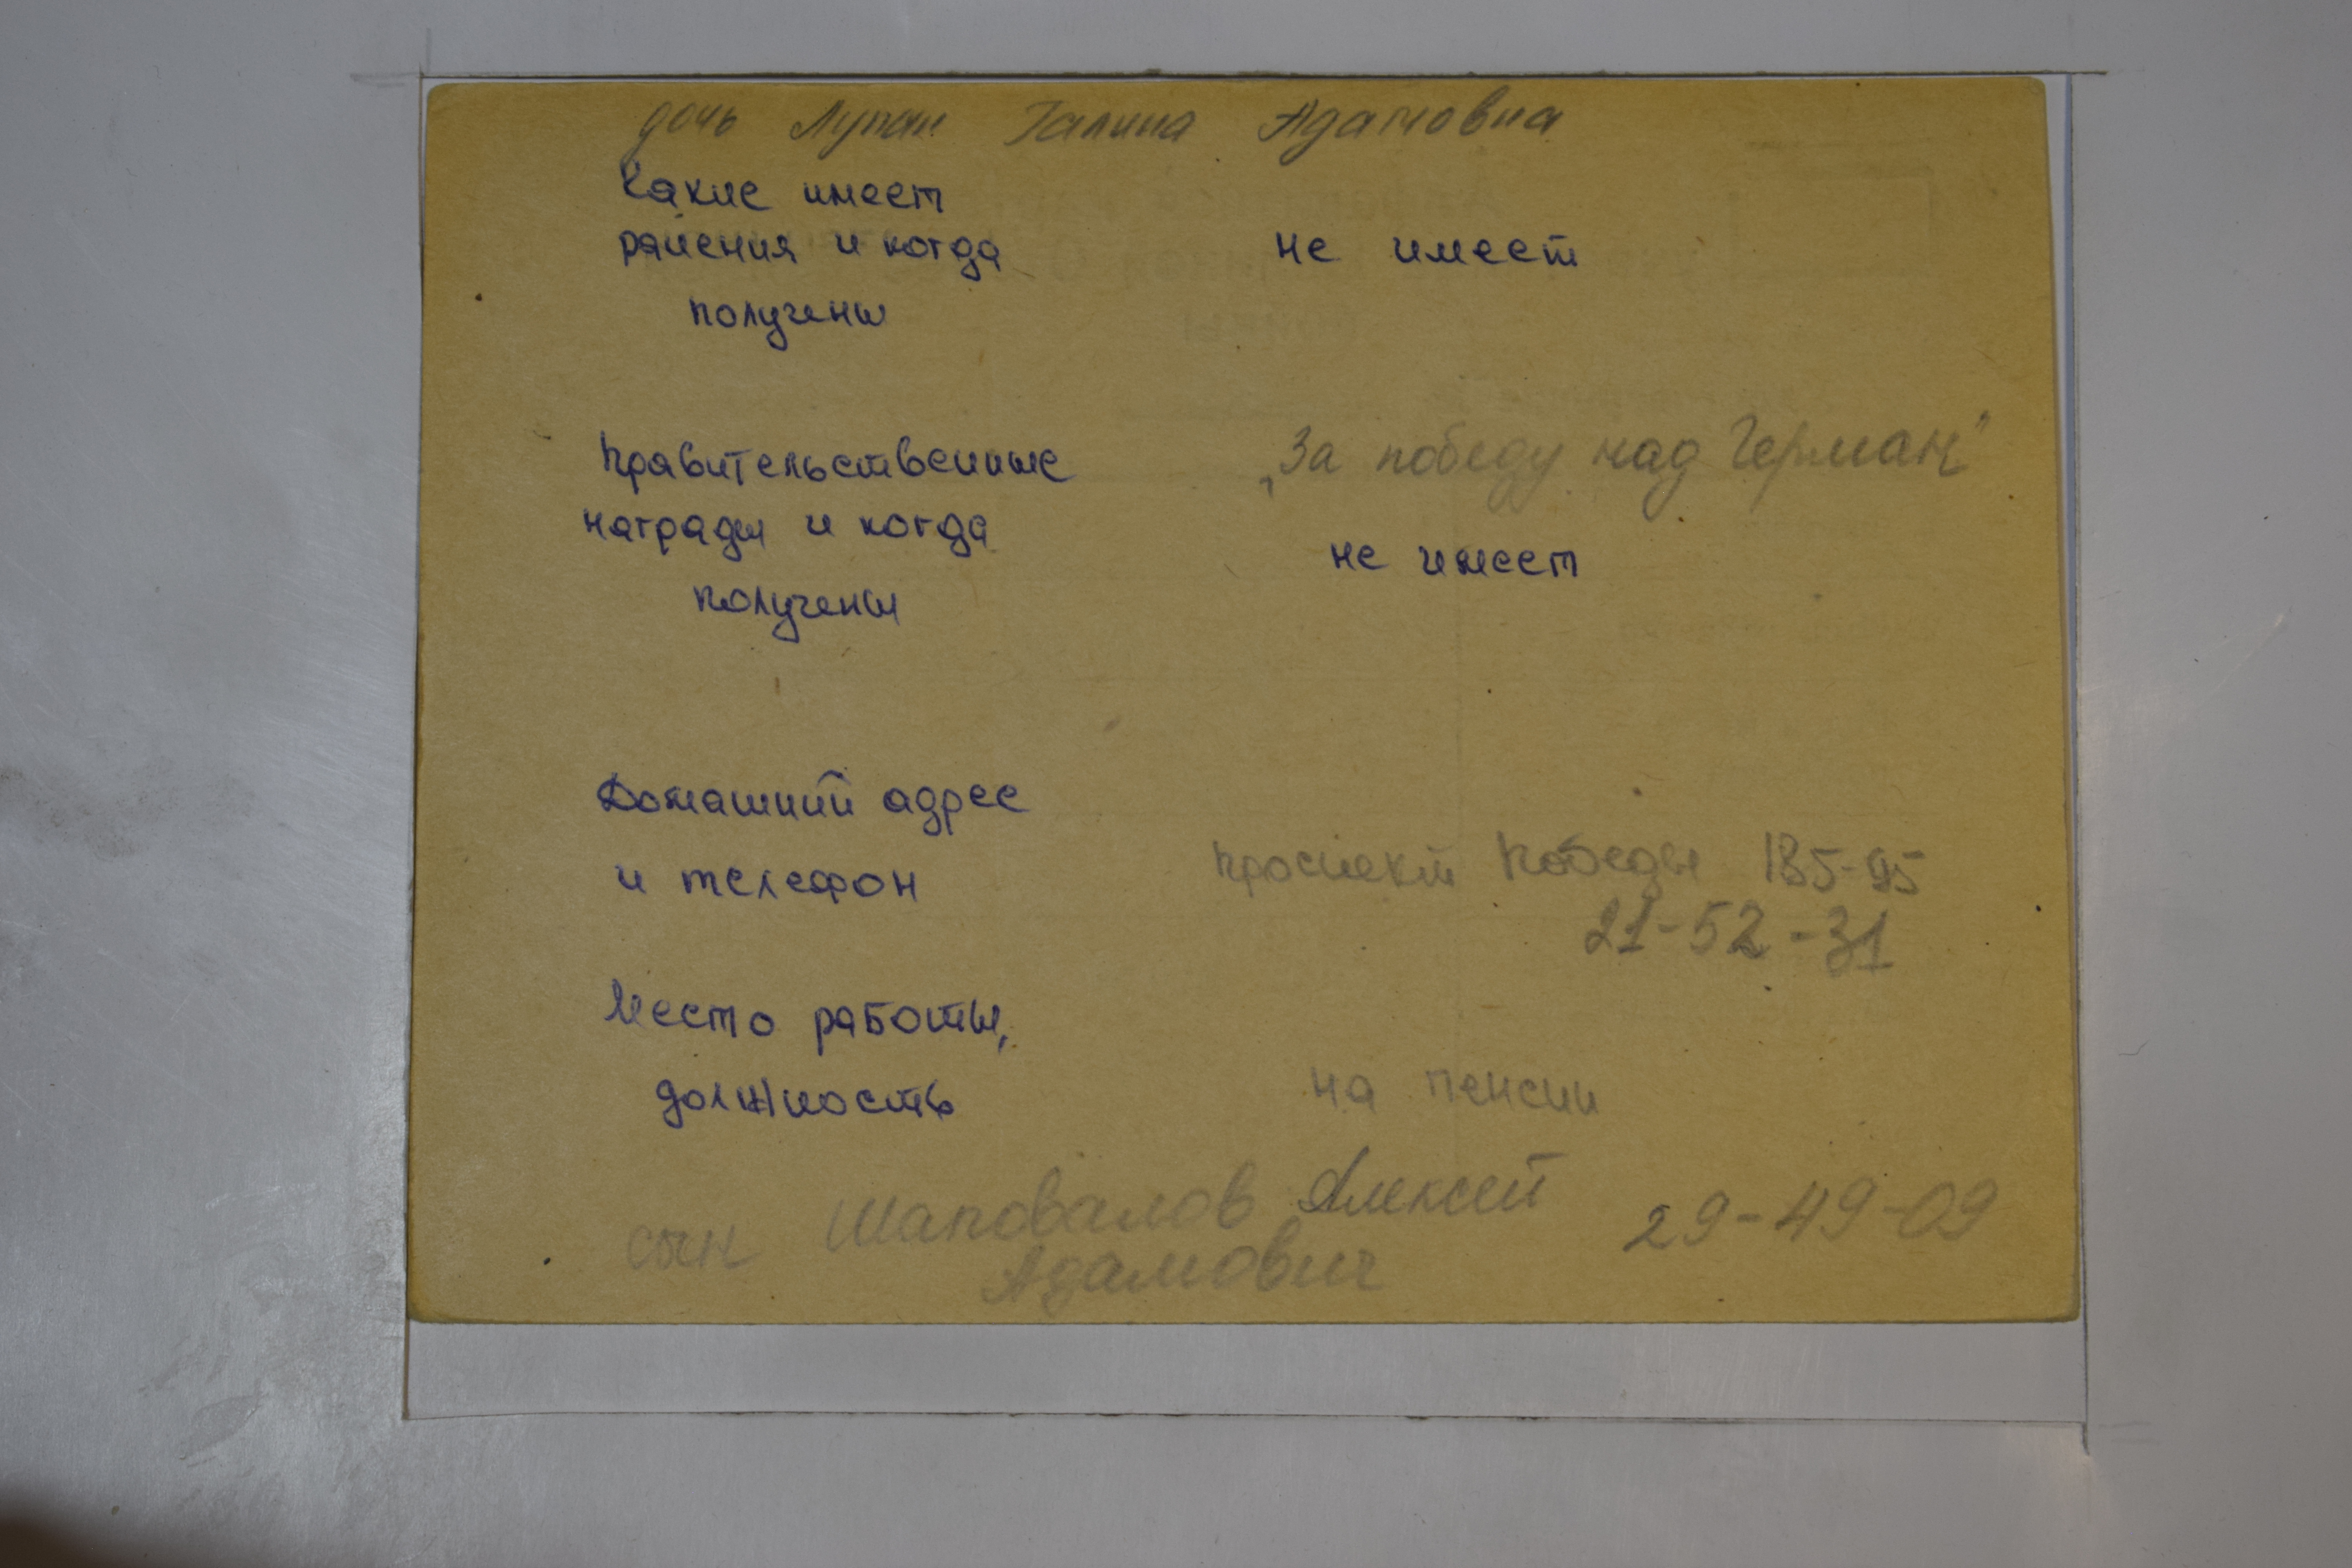 дочь Лупан Галина Адамовна
Какие имеет
ранения и когда не имеет
получены
Правительственные „За победу над Герман"
награды и когда
не имеет
получены
Домашний адрес
и телефон проспект Победы 185-95
21-52-31
Место работы,
должность на пенсии
сын Шаповалов Алексей 29-49-09
Адамович